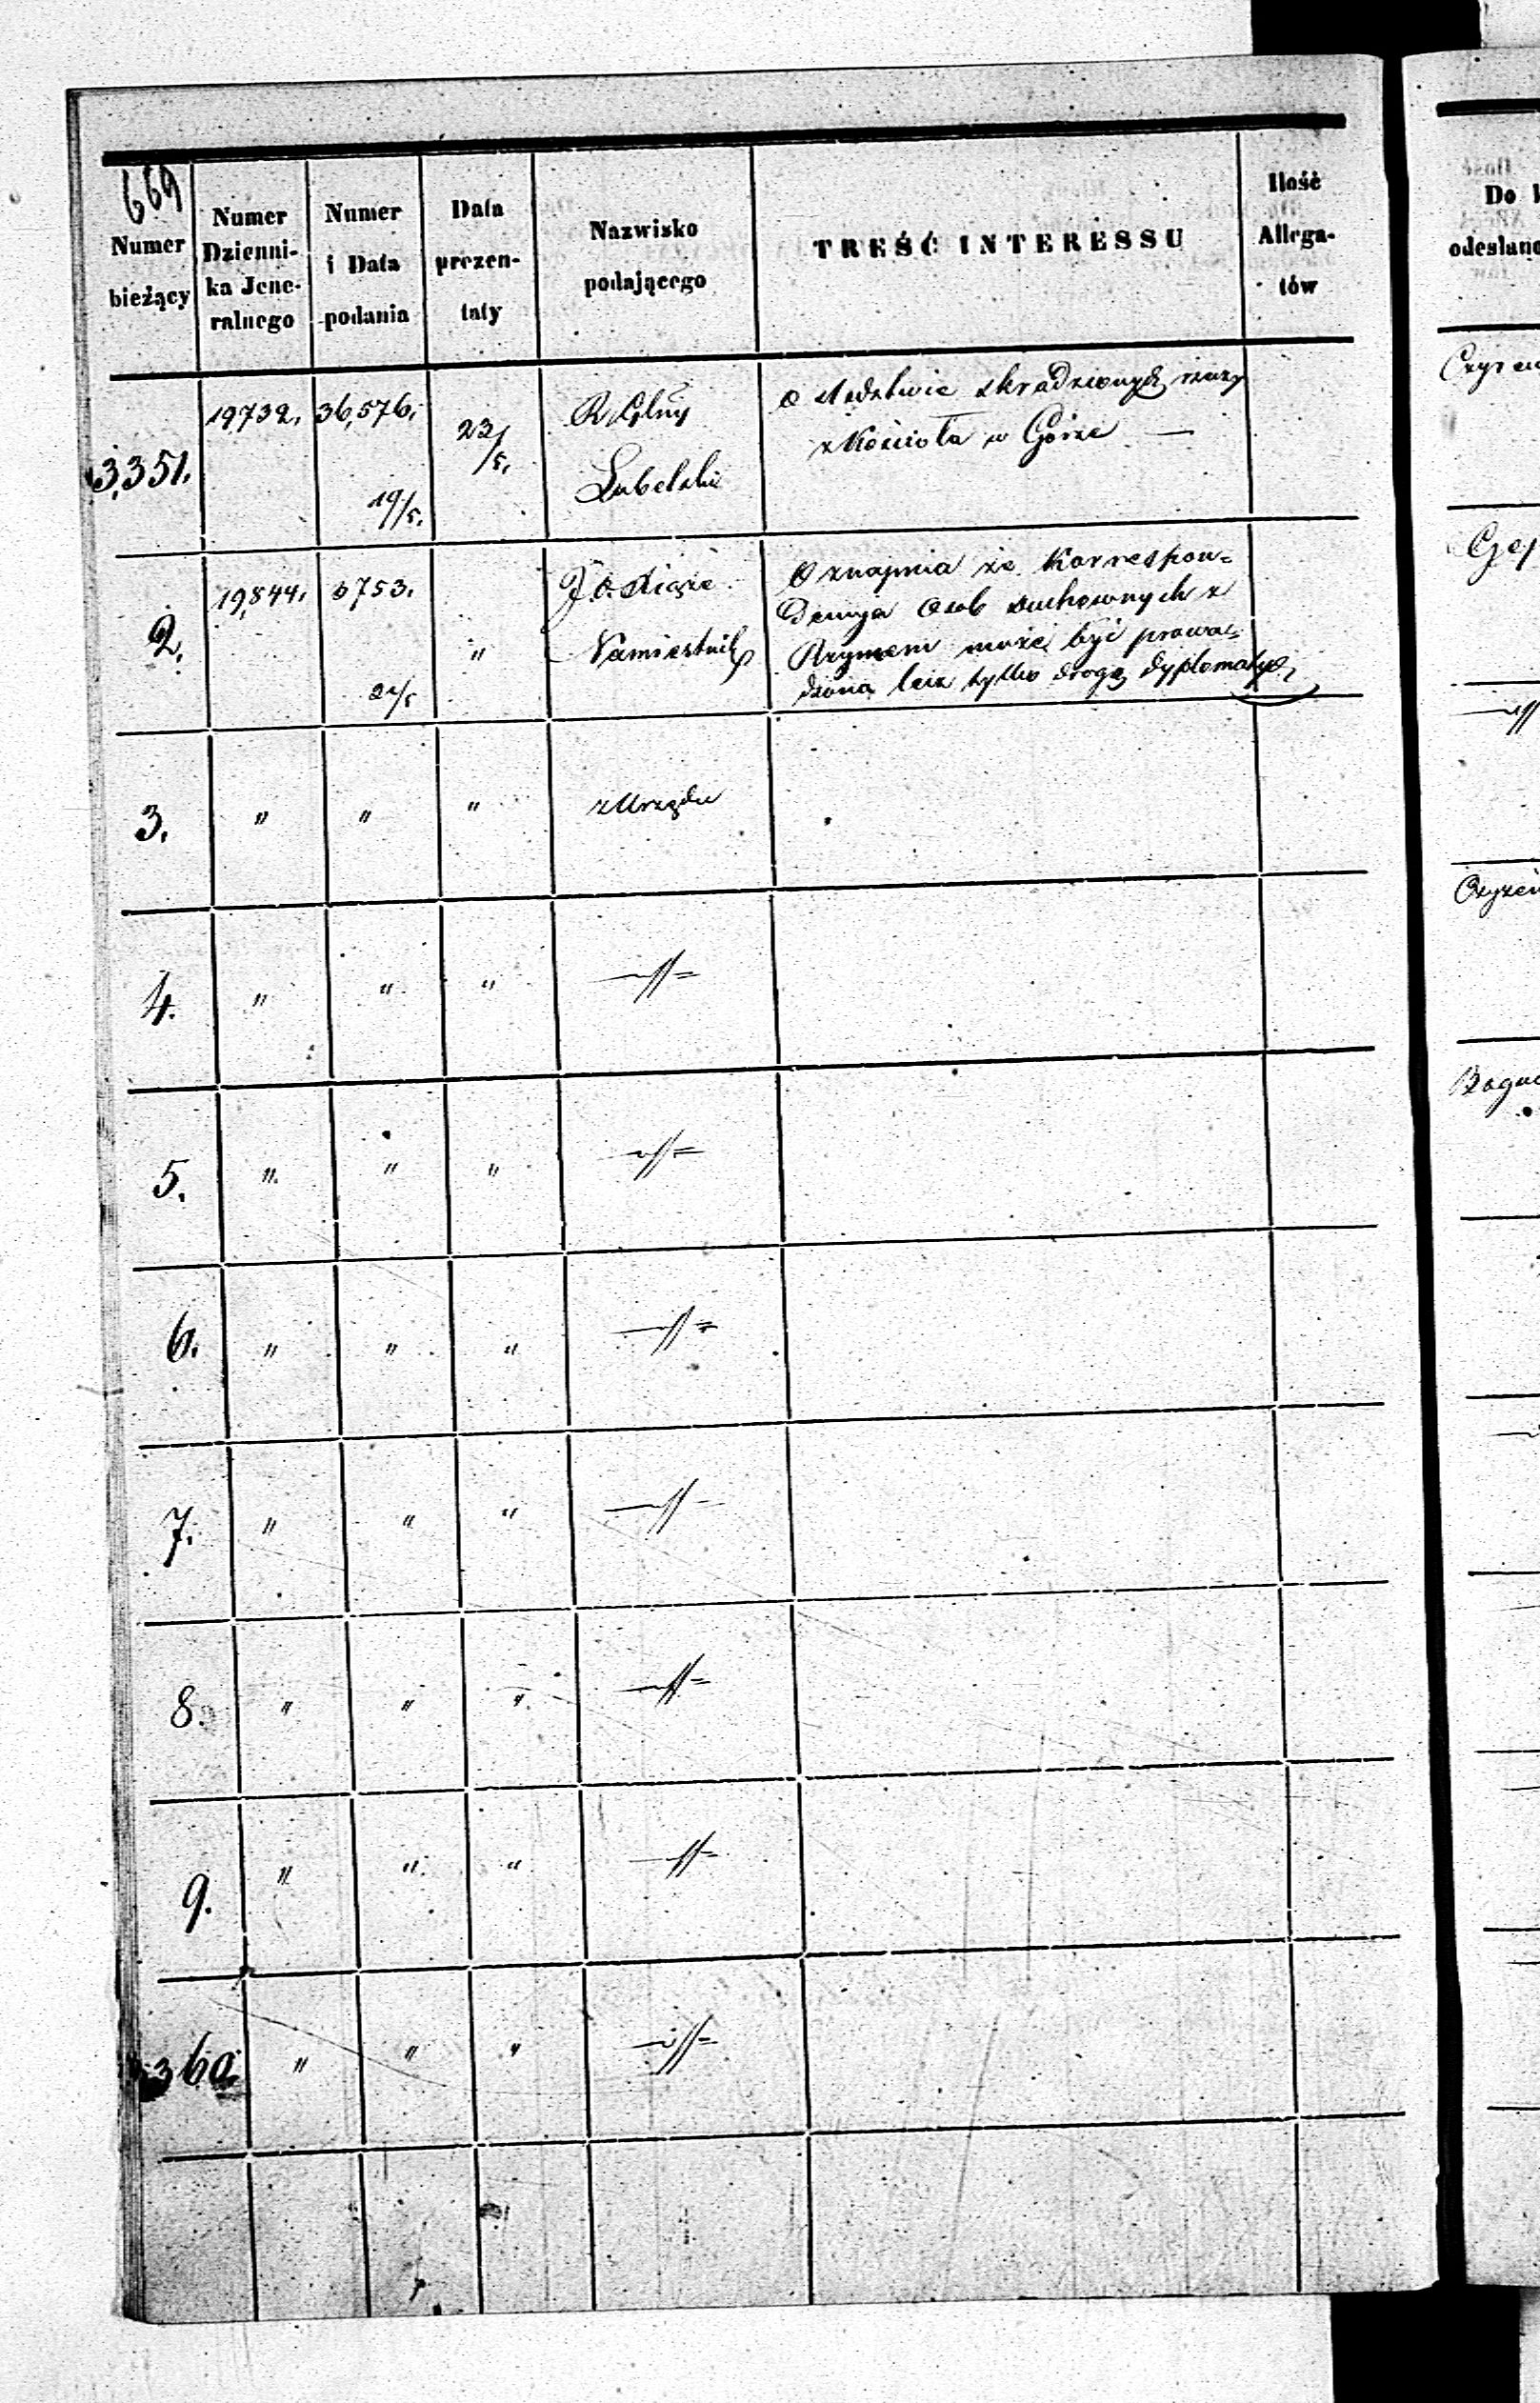 669
Numer
bieżący
Numer
Dzienni-
ka Jene-
ralnego
Numer
i Data
podania
Data
prezen-
taty
Nazwisko
podającego
TREŚĆ INTERESSU
Ilość
Allega-
tów
3,351.
19,732.
36,576.
19/5.
23/5.
R Gblny
Lubelski
o śledztwie skradzionych rzeczy
z Kościoła w Górze —
2.
19,844.
3753.
21/5
"
J. O. Xiąże
Namiestnik
Oznajmia że Korrespon=
dencya Osób duchownych z
Rzymem może być prowa=
dzona lecz tylko drogą dyplomatycz.
3.
"
"
"
z Urzędu
4.
"
"
"
5.
"
"
"
6.
"
"
"
7.
"
"
"
8.
"
"
"
9.
"
"
"
3360.
"
"
"
Do